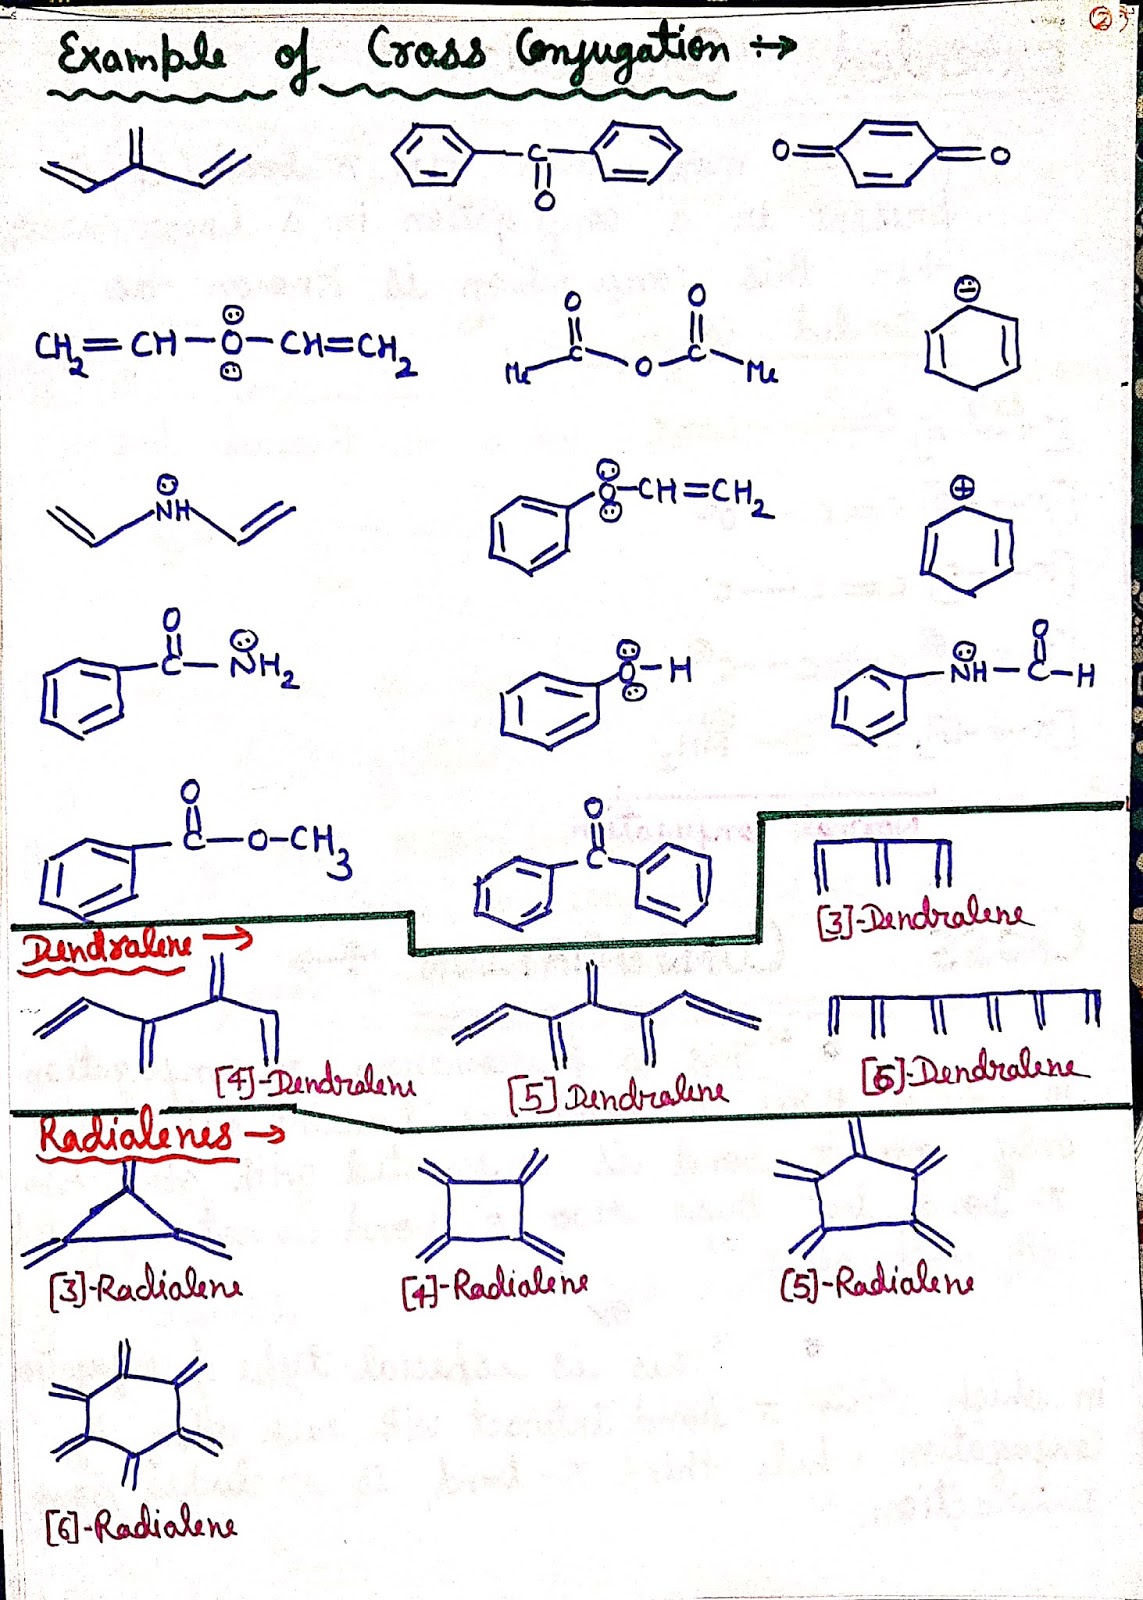 2
Example of Cross Conjugation
C
O
O O
CH2=CH-O-CH=CH2
O O
C C
Me O Me
NH
O-CH=CH2
O
C-NH2
O-H
O
NH-C-H
O
C-O-CH3
O
C
[3]-Dendralene
Dendralene →
[4]-Dendralene
[5] Dendralene
[6]-Dendralene
Radialenes →
[3]-Radialene
[4]-Radialene
[5]-Radialene
[6]-Radialene